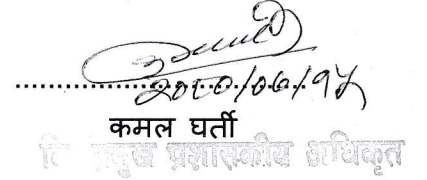 २०८०/०६/१५
कमल घर्ती
नि. प्रमुख प्रशासकीय अधिकृत